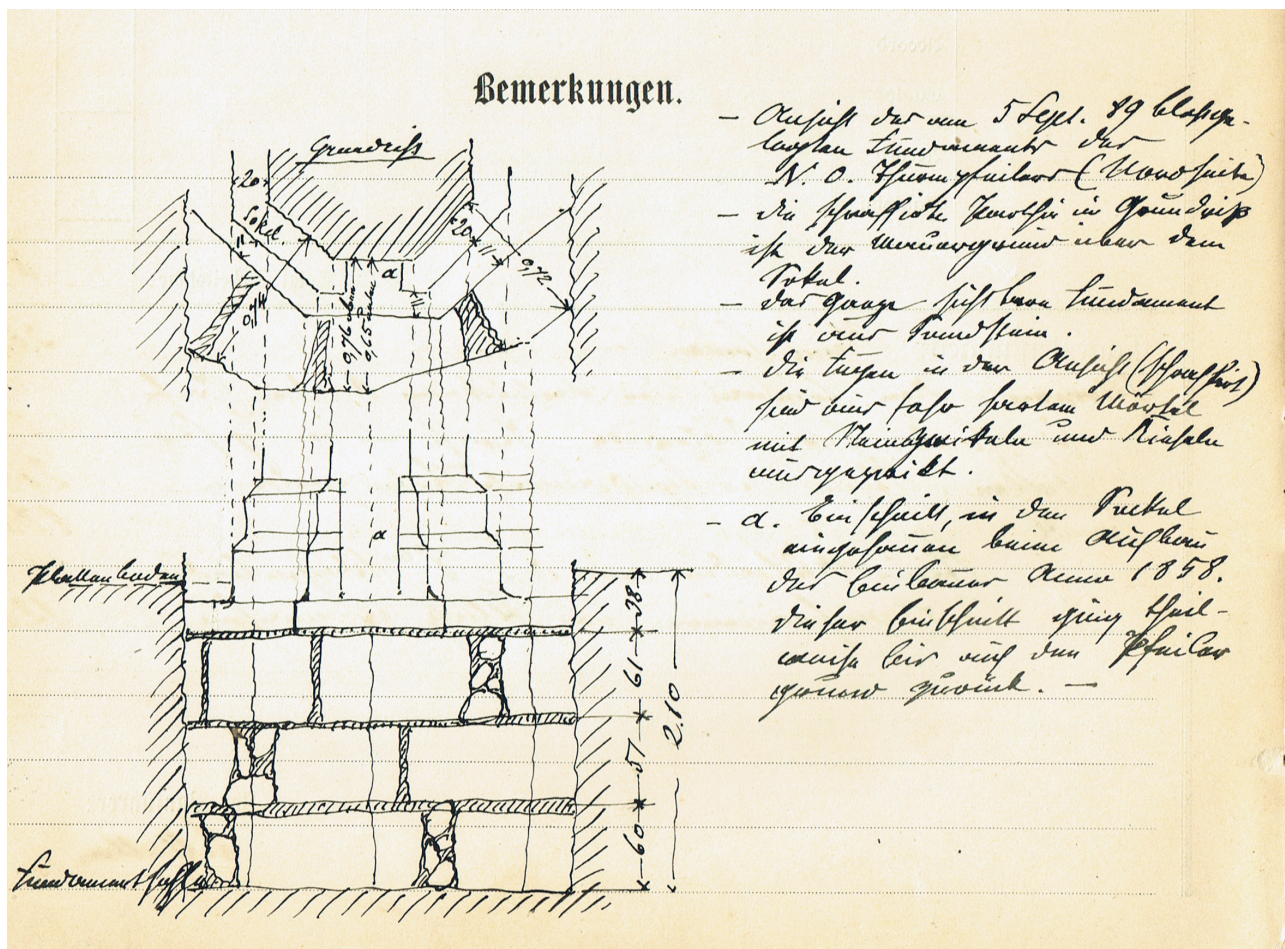 Bemerkungen.
Grundriß
20
Sokel.
11
0,74
20
11
0,72
a
11
0,76 oben
0,65 unten
a
Plattenboden
38
61
51
60
2.10
Fundamentsohle
— Ansicht des am 5 Sept. 89 blossge-
legten Fundaments des
N. O. Thurmpfeilers (Nordseite)
— die schraffirte Parthie in Grundriß
ist der Mauergrund über dem
Sokel.
— das ganze sichtbare Fundament
ist aus Sandstein.
— die Fugen in der Ansicht (schraffirt)
sind aus sehr hartem Mörtel
mit Steinzwikeln und Kieseln
ausgezwikt.
— a. Einschnitt, in den Sockel
eingehauen beim Aufbau
des Einbaues Anno 1858.
dieser Einschnitt ging theil-
weise bis auf den Pfeiler
grund zurück. —